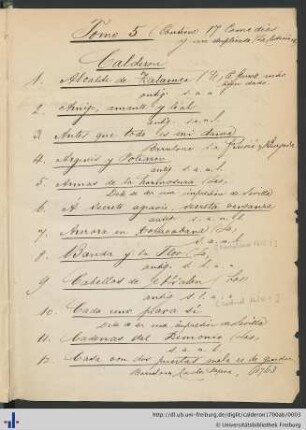 Tomo 5 (Contiene 17 Comedias
y un duplicado
Calderon
1. Alcalde de Zalamea (El)
antig. s. a. l.
2. Amigo, amante y leal
antig. s. a. l.
3. Antes que todo es mi dama
Barcelona
4. Argenis y Poliarco
antig. s. a. l.
5. Armas de la hermosura (Las)
Sale de ser una impresión de Sevilla
6. A secreto agravio, secreta venganza
s. a. l.
7. Aurora en Copacabana (La)
s. a. l.
8. Banda y la Flor (La)
antig. s. a. l.
9. Cabellos de Absalon (Los)
antig s. l. a.
10. Cada uno para sí
de una impresion de Sevilla
11. Cadenas del Demonio (Las)
s. a. l.
12. Casa con dos puertas mala es de guardar
Barcelona 1763
http://dl.ub.uni-freiburg.de/diglit/calderon1700ab/0003
© Universitätsbibliothek Freiburg